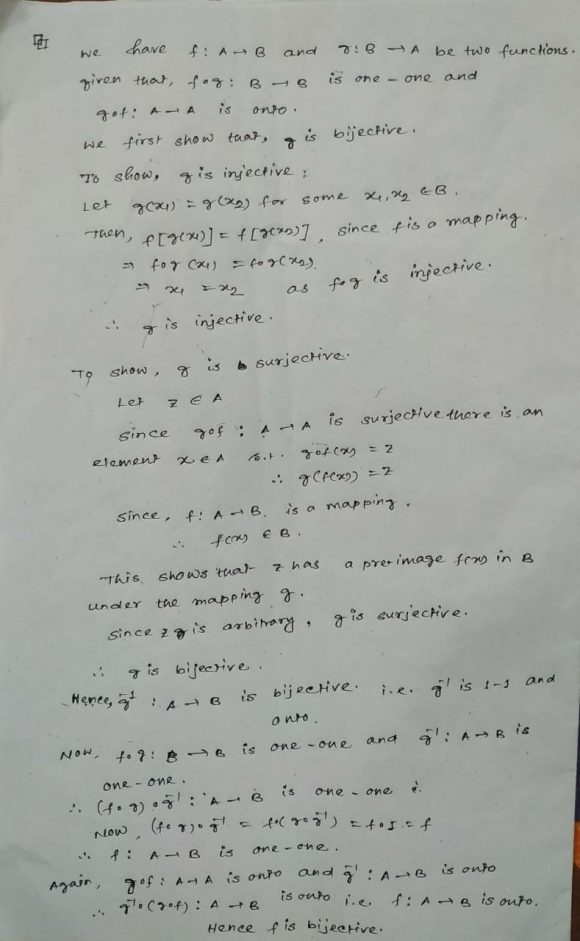 we have f: A → B and g: B → A be two functions.
given that, fog: B → B is one-one and
gof: A → A is onto.
we first show that, g is bijective.
To show, g is injective;
Let g(x₁) = g(x₂) for some x₁, x₂ ∈ B.
Then, f[g(x₁)] = f[g(x₂)], since f is a mapping.
⇒ fog(x₁) = fog(x₂)
⇒ x₁ = x₂ as fog is injective.
∴ g is injective.
To show, g is surjective.
Let z ∈ A
since gof : A → A is surjective there is an
element x ∈ A s.t. gof(x) = z
∴ g(f(x)) = z
since, f: A → B. is a mapping.
∴ f(x) ∈ B.
This shows that z has a pre-image f(x) in B
under the mapping g.
since z is arbitrary, g is surjective.
∴ g is bijective.
Hence, g⁻¹ : A → B is bijective. i.e. g⁻¹ is 1-1 and
onto.
Now, fog: B → B is one-one and g⁻¹: A → B is
one-one.
∴ (fog)og⁻¹ : A → B is one-one
Now, (fog)og⁻¹ = fo(gog⁻¹) = foI = f
∴ f: A → B is one-one.
Again, gof: A → A is onto and g⁻¹ : A → B is onto
∴ g⁻¹o(gof) : A → B is onto i.e. f: A → B is onto.
Hence f is bijective.